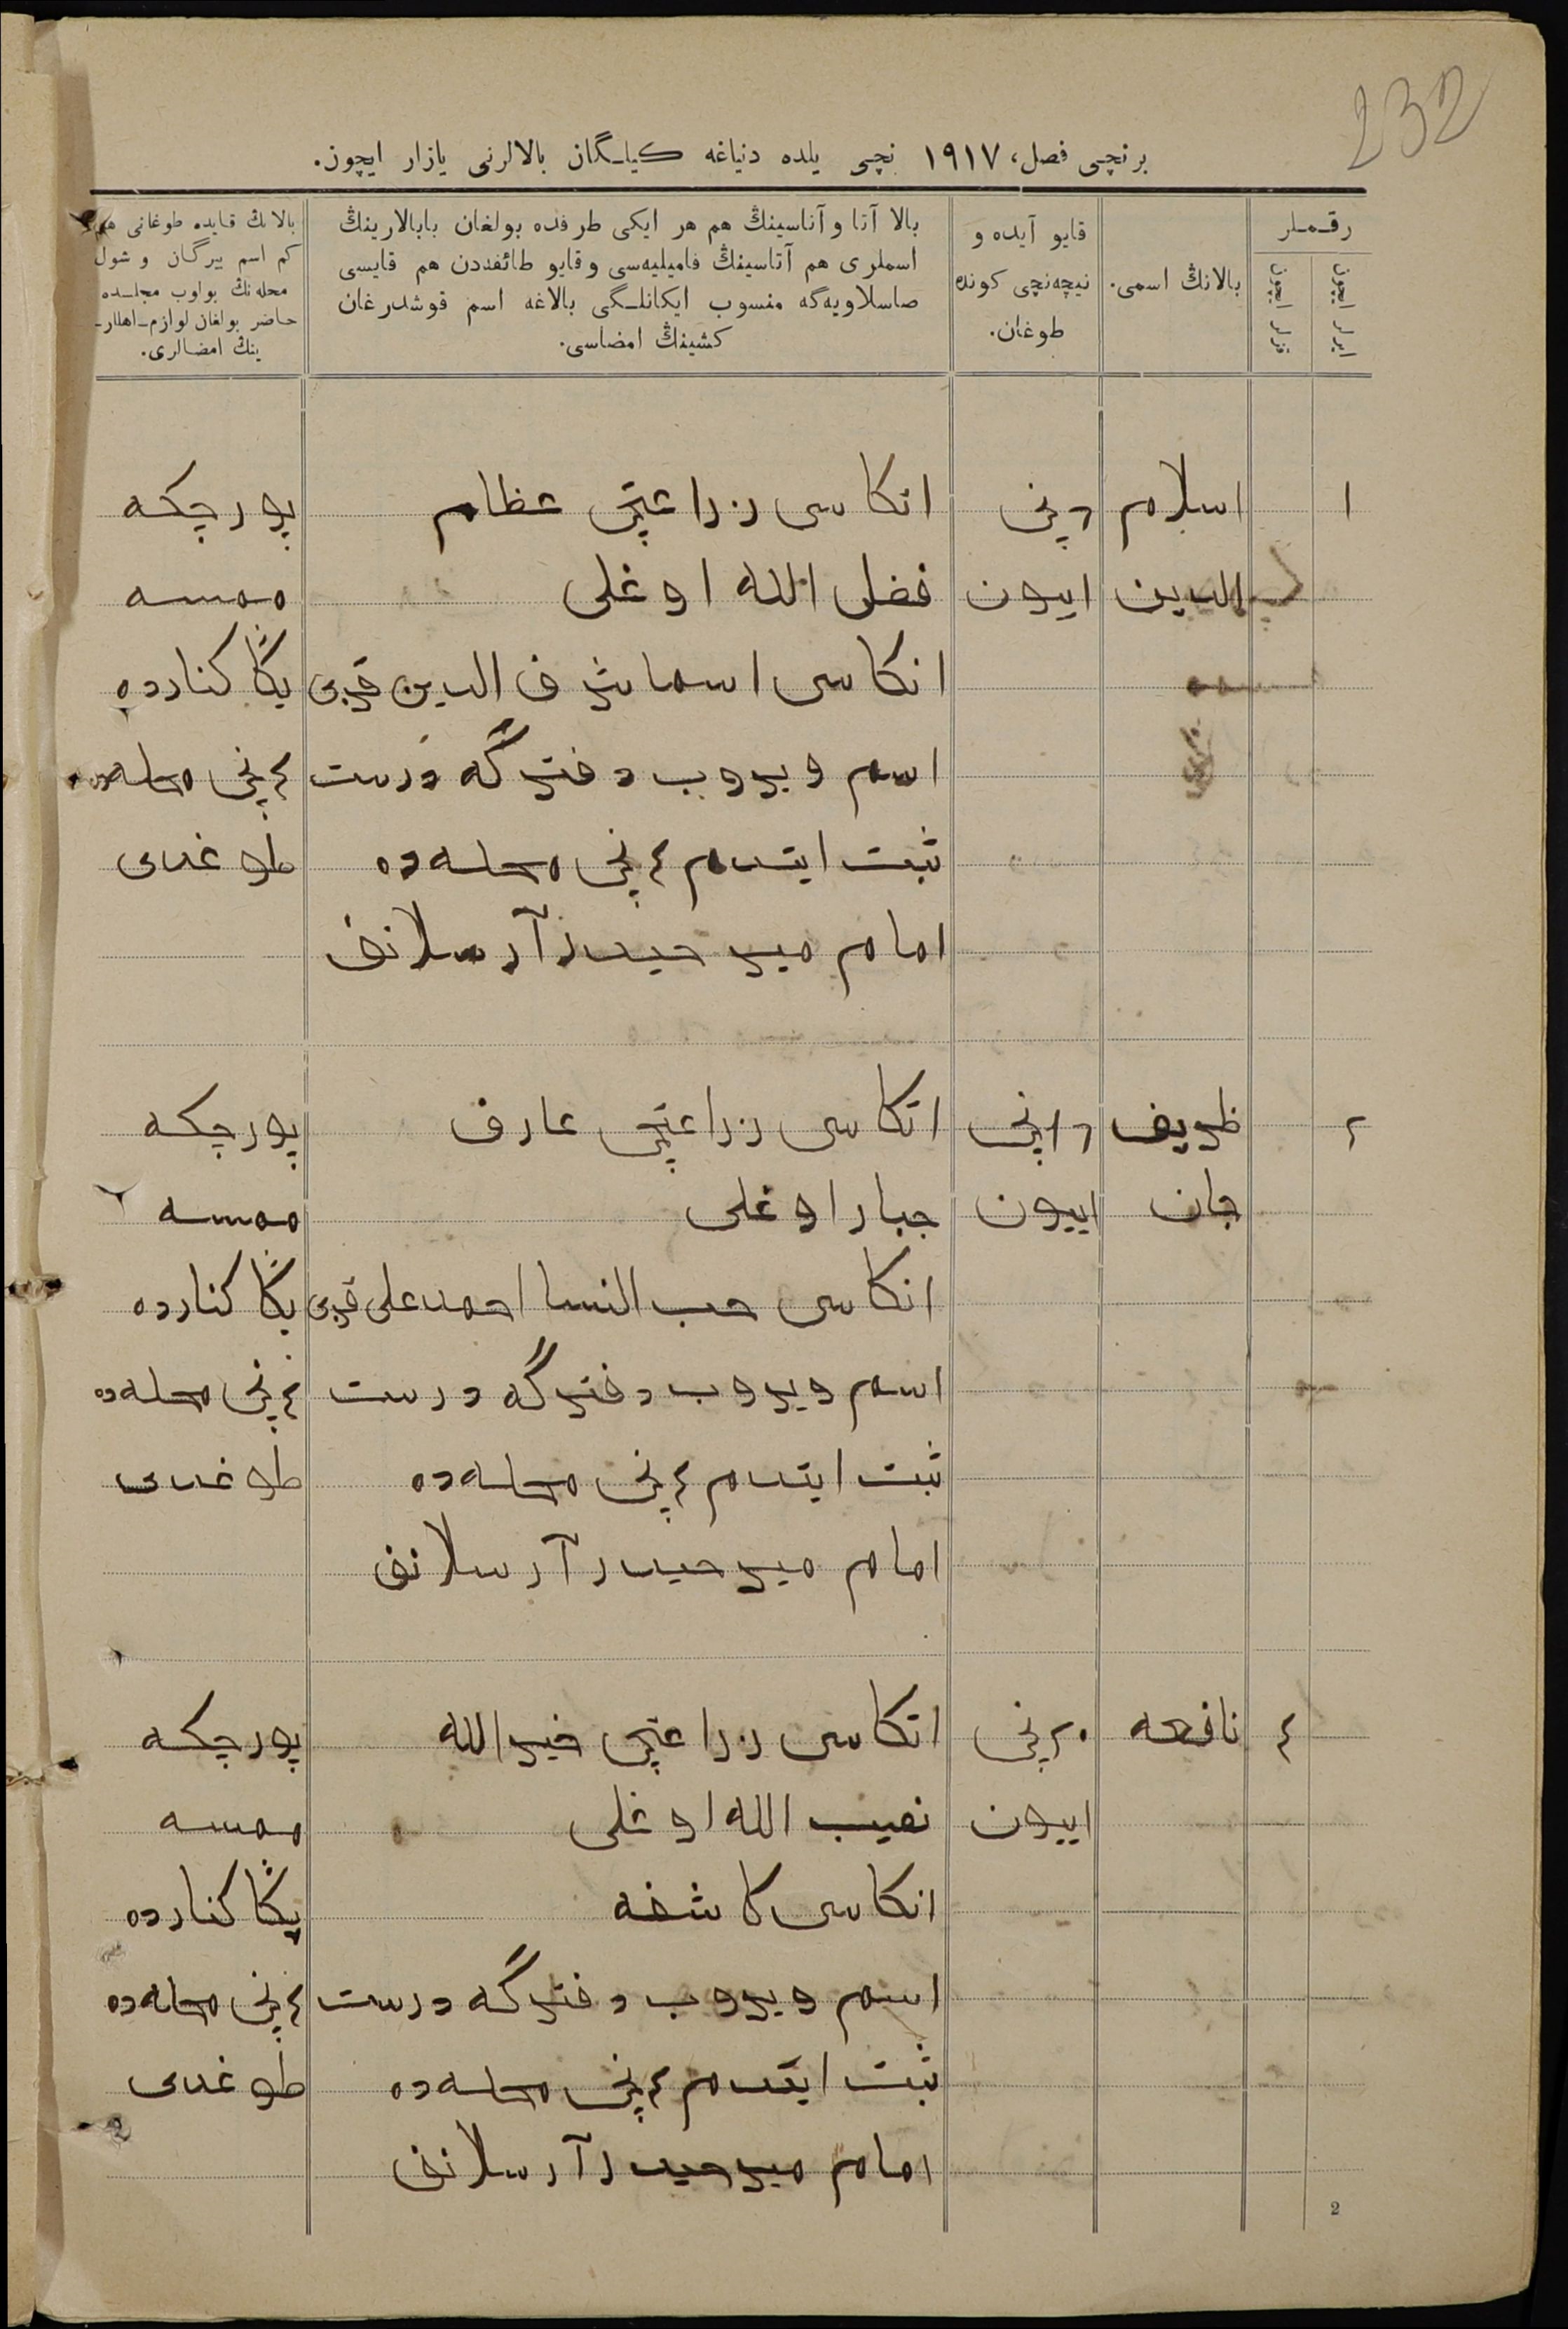 232
برنچی فصل، ١٩١٧ نچی يلده دنياغه كيلـگان بالالرنی يازار ايچون.
رقـملر
ايرلر ايچون
قزلر ايچون
بالانڭ اسمی.
قايو آيده و
نيچه‌نچی كونده
طوغان.
بالا آتا و آناسينڭ هم هر ايكی طرفده بولغان بابالارينڭ
اسملری هم آتاسينڭ فاميليه‌سی و قايو طائفه‌دن هم قايسی
صاسلاويه‌گه منسوب ايكانلـگی بالاغه اسم قوشدرغان
كشينڭ امضاسی.
بالانڭ قايده طوغانی هم
كم اسم بيرگان و شول
محله‌نڭ بولوب مجلسده
حاضر بولغان لوازم اهللر
ينڭ امضالری.
١
اسلام
الدين
ايیون
اتكاسی زراعتچی عظام
فضل الله اوغلی
انكاسی اسما شرف الدين قزی
اسم ويروب دفترگه درست
ثبت ايتدم ٤ نچی محله‌ده
امام ميرحيدر آرسلانف
پورچكه
ممسه
يڭا كنارده
٤ نچی محله‌ده
طوغدی
٢
ظريف
جان
ايیون
اتكاسی زراعتچی عارف
جبار اوغلی
انكاسی حب النسا احمدعلی قزی
اسم ويروب دفترگه درست
ثبت ايتدم ٤ نچی محله‌ده
امام ميرحيدر آرسلانف
پورچكه
ممسه
يڭا كنارده
٤ نچی محله‌ده
طوغدی
٤
نافعه
٢٠ نچی
ايیون
اتكاسی زراعتچی خيرالله
نصيب الله اوغلی
انكاسی كاشفه
اسم ويروب دفترگه درست
ثبت ايتدم ٤ نچی محله‌ده
امام ميرحيدر آرسلانف
پورچكه
ممسه
يڭا كنارده
٤ نچی محله‌ده
طوغدی
2